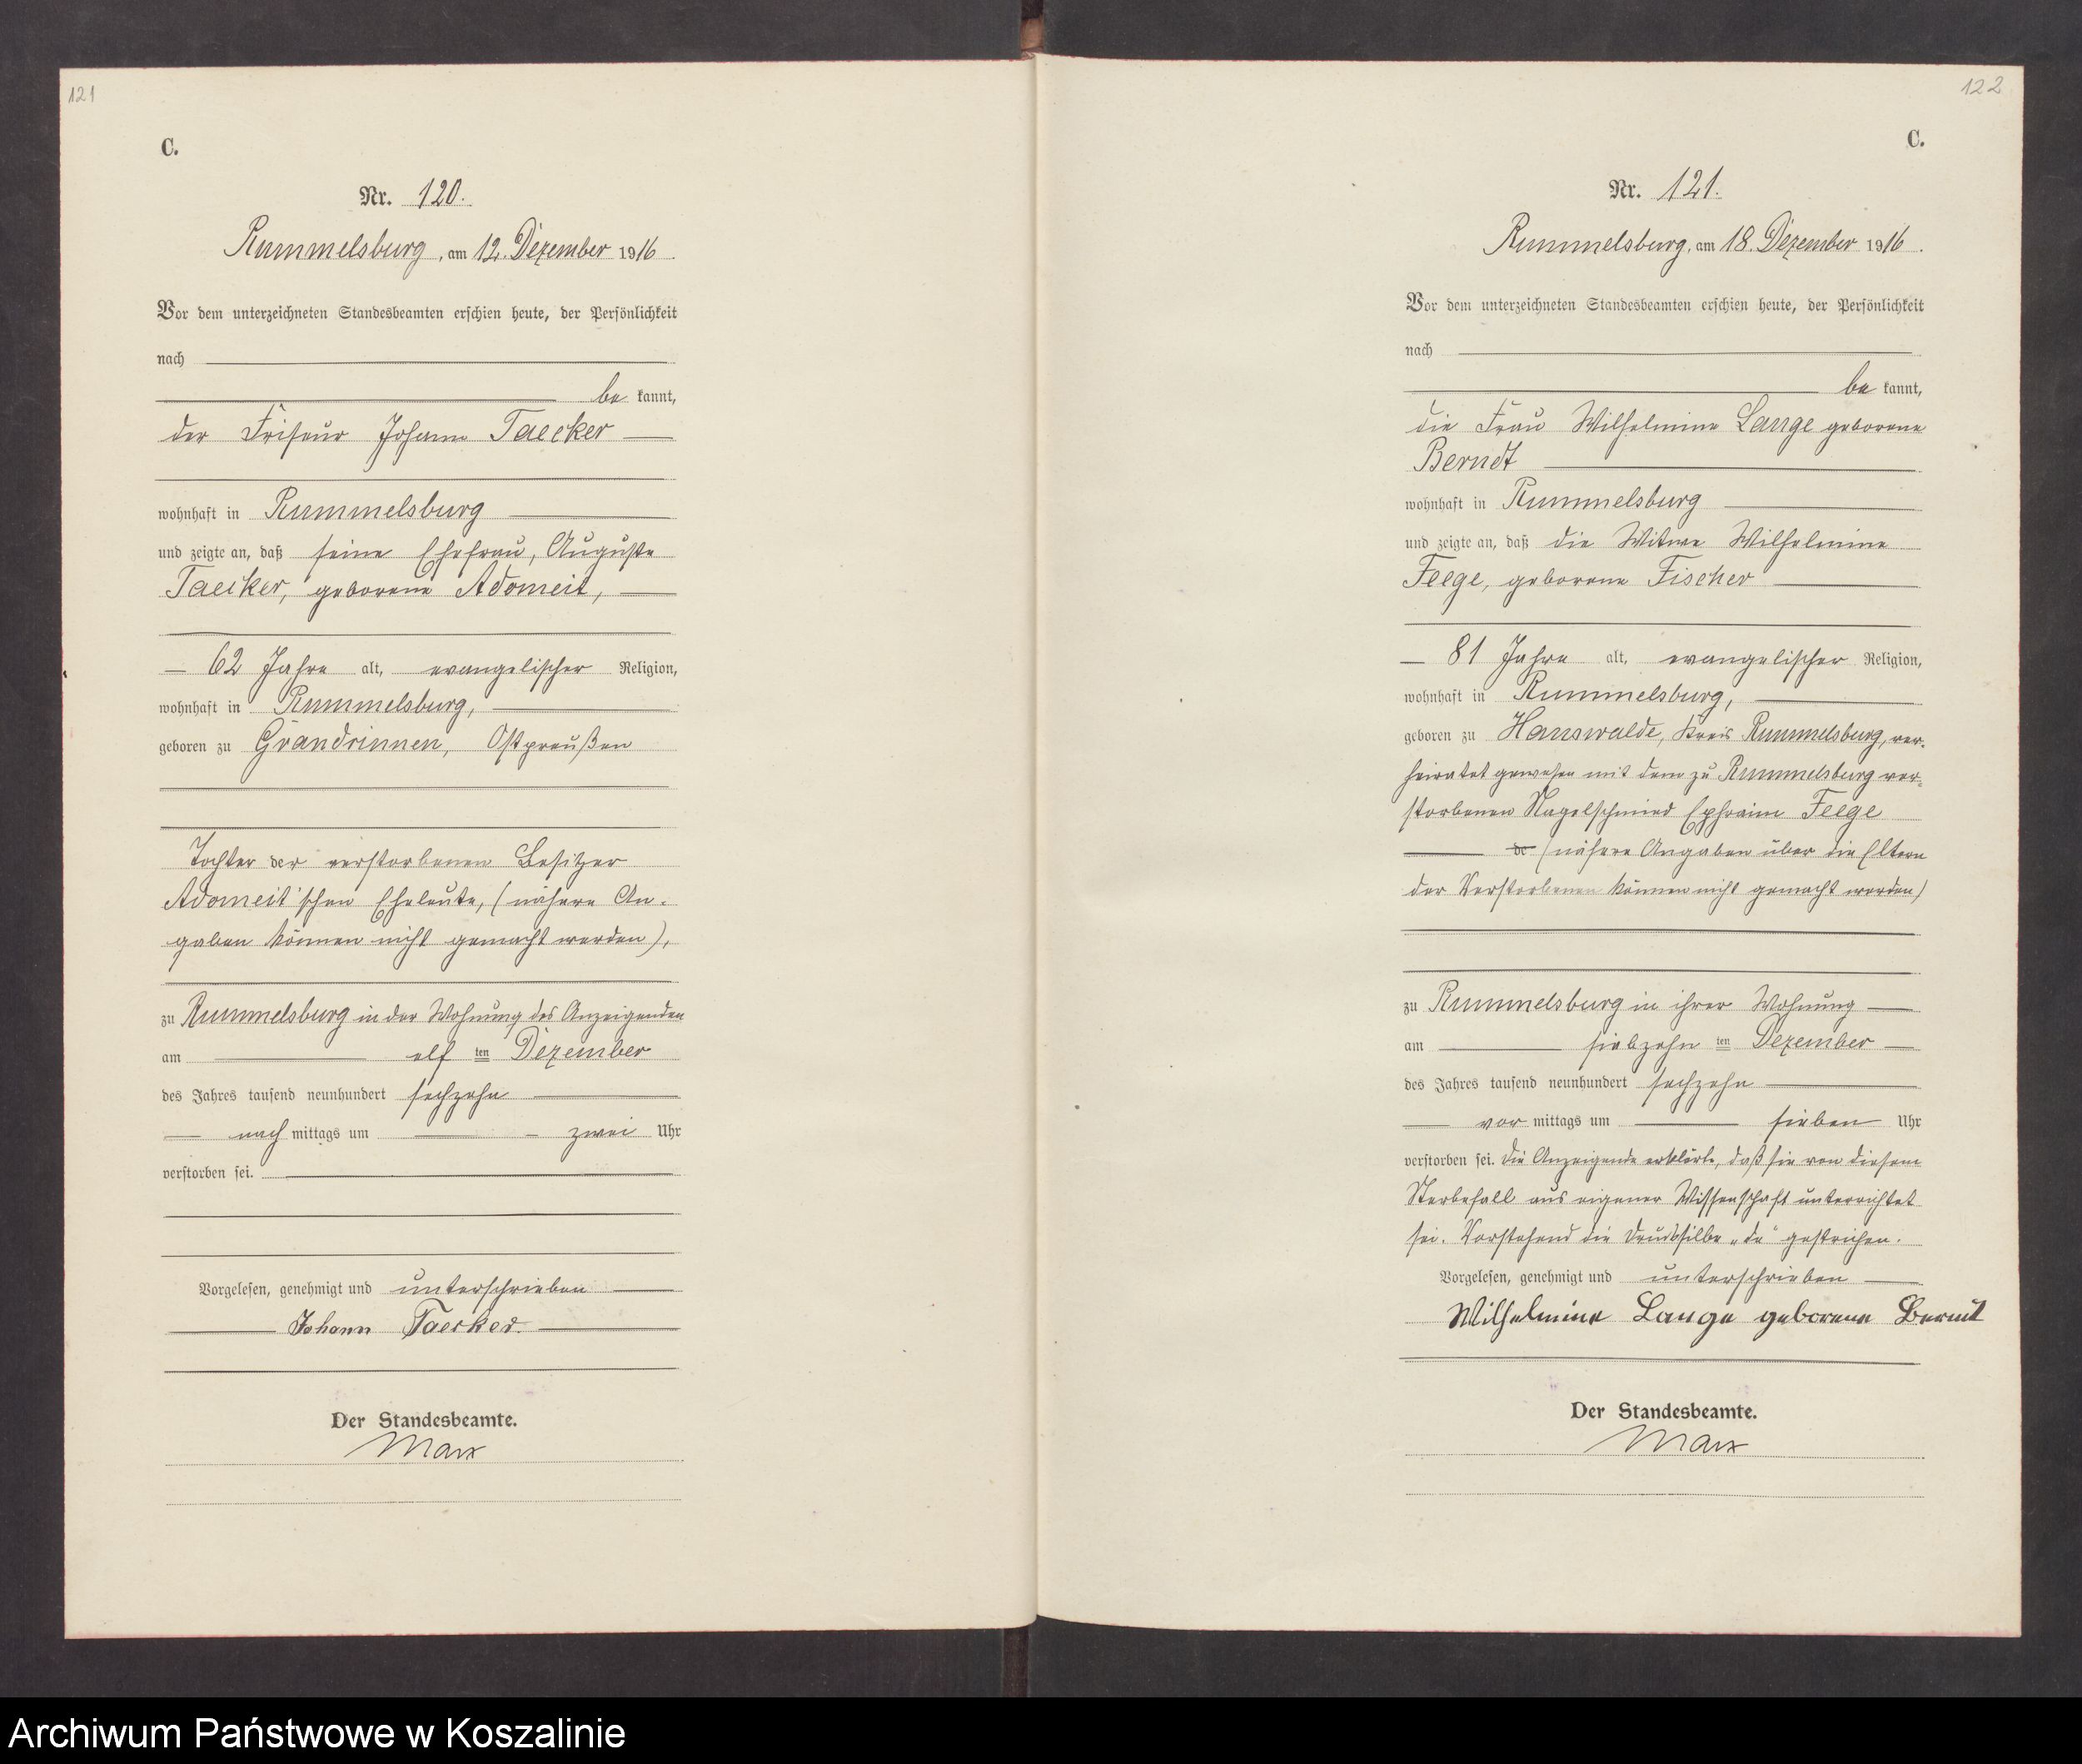 121
C.
Nr. 120.
Rummelsburg, am 12. Dezember 1916.
Vor dem unterzeichneten Standesbeamten erschien heute, der Persönlichkeit
nach
be kannt,
der Friseur Johann Taecker
wohnhaft in Rummelsburg
und zeigte an, daß seine Ehefrau, Auguste
Taecker, geborene Adomeit,
62 Jahre alt, evangelischer Religion,
wohnhaft in Rummelsburg,
geboren zu Grandrinnen, Ostpreußen
Tochter der verstorbenen Besitzer
Adomeit'schen Eheleute, (nähere An-
gaben können nicht gemacht werden),
zu Rummelsburg in der Wohnung des Anzeigenden
am elf ten Dezember
des Jahres tausend neunhundert sechzehn
nach mittags um zwei Uhr
verstorben sei.
Vorgelesen, genehmigt und unterschrieben
Johann Taecker.
Der Standesbeamte.
Marx
122
C.
Nr. 121.
Rummelsburg, am 18. Dezember 1916.
Vor dem unterzeichneten Standesbeamten erschien heute, der Persönlichkeit
nach
be kannt,
die Frau Wilhelmine Lange geborene
Berndt
wohnhaft in Rummelsburg
und zeigte an, daß die Witwe Wilhelmine
Feege, geborene Fischer
81 Jahre alt, evangelischer Religion,
wohnhaft in Rummelsburg,
geboren zu Hanswalde, Kreis Rummelsburg, ver-
heiratet gewesen mit dem zu Rummelsburg ver-
storbenen Nagelschmied Ephraim Feege
de (nähere Angaben über die Eltern
der Verstorbenen können nicht gemacht werden)
zu Rummelsburg in ihrer Wohnung
am siebzehn ten Dezember
des Jahres tausend neunhundert sechzehn
vor mittags um sieben Uhr
verstorben sei. Die Anzeigende erklärte, daß sie von diesem
Sterbefall aus eigener Wissenschaft unterrichtet
sei. Vorstehend die Drucksilbe „de" gestrichen.
Vorgelesen, genehmigt und unterschrieben
Wilhelmine Lange geborene Berndt
Der Standesbeamte.
Marx
Archiwum Państwowe w Koszalinie